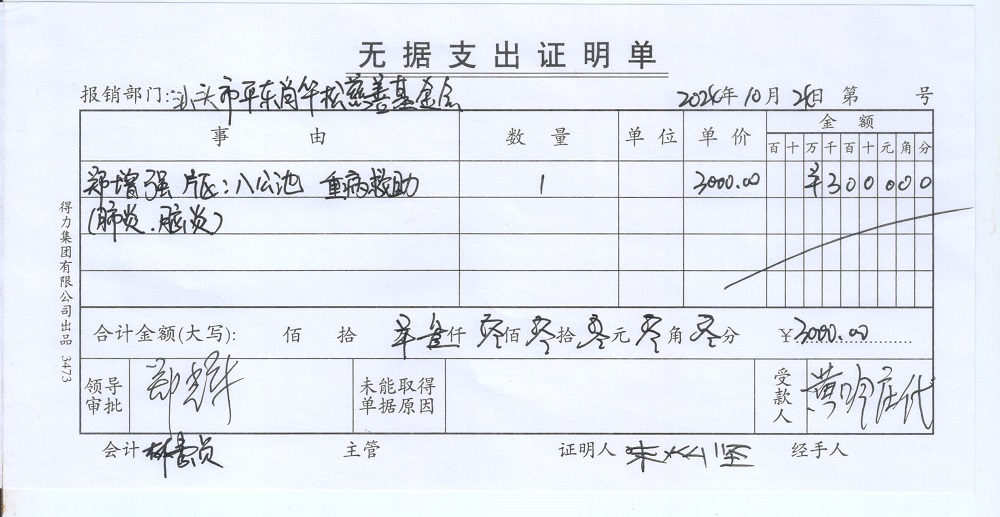 无据支出证明单
报销部门:汕头市平东尚华松慈善基金会 2024年10月24日 第 号
事由 数量 单位 单价 金额
百十万千百十元角分
郑增强 片区:八公池 重病救助 1 3000.00 ¥300000
(肺炎、脑炎)
合计金额(大写): 佰 拾 仟 零佰零拾零元零角零分 ¥3000.00
领导审批 郑 未能取得单据原因 受款人 黄 庄代
会计 主管 证明人 经手人
得力集团有限公司出品 3473